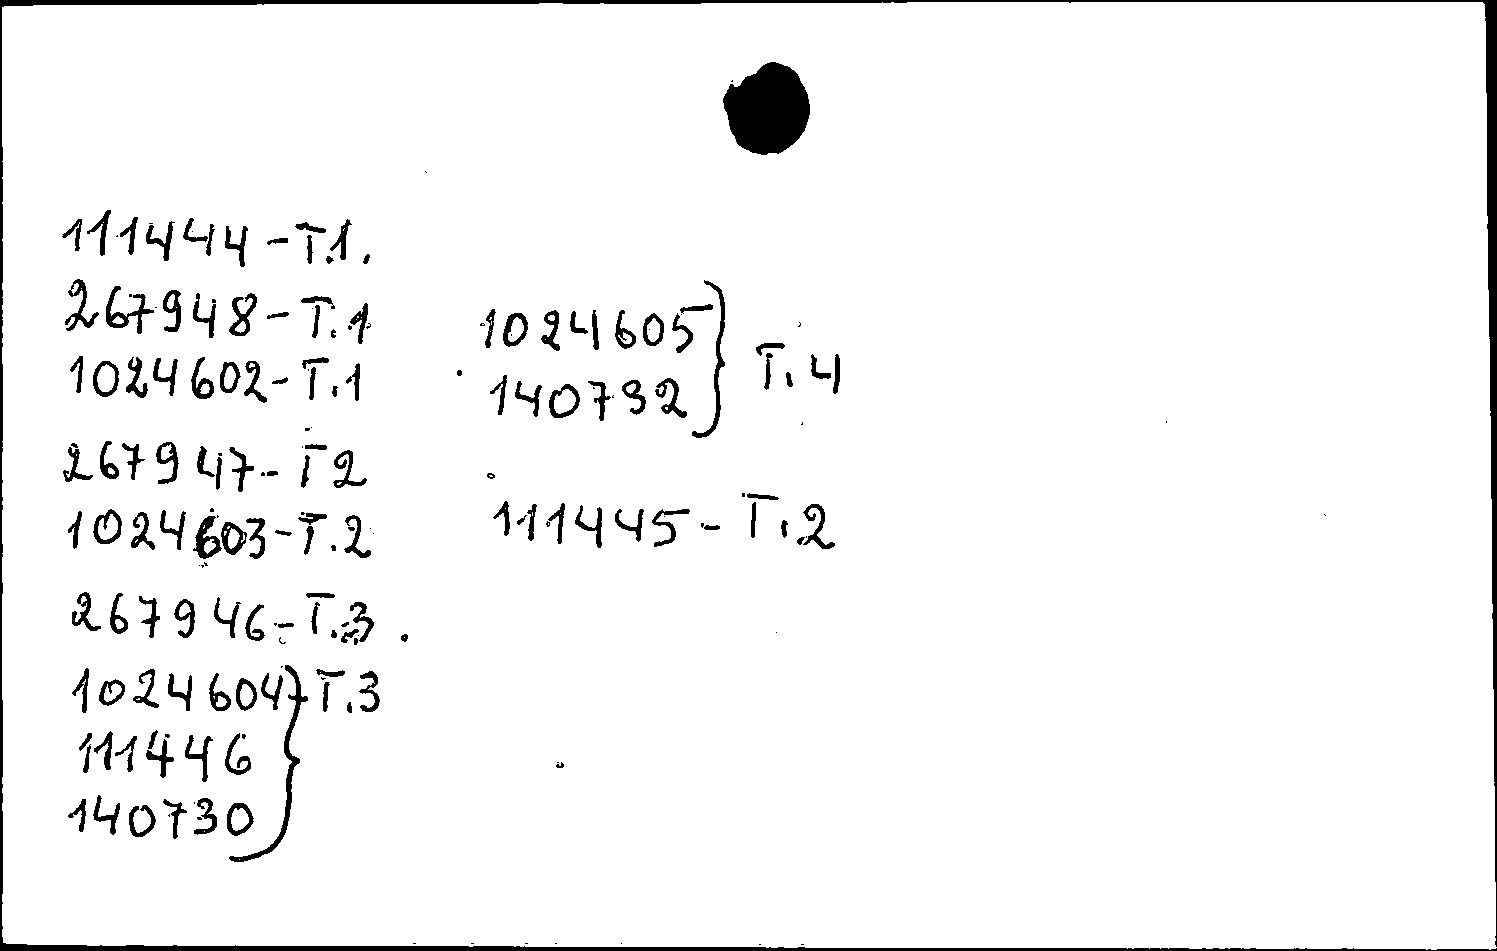 111444-T.1.
267948-T.1
1024602-T.1
267947-T2
1024603-T.2
267946-T.3.
1024604-T.3
111446
140730
1024605
140732
T.4
111445-T.2